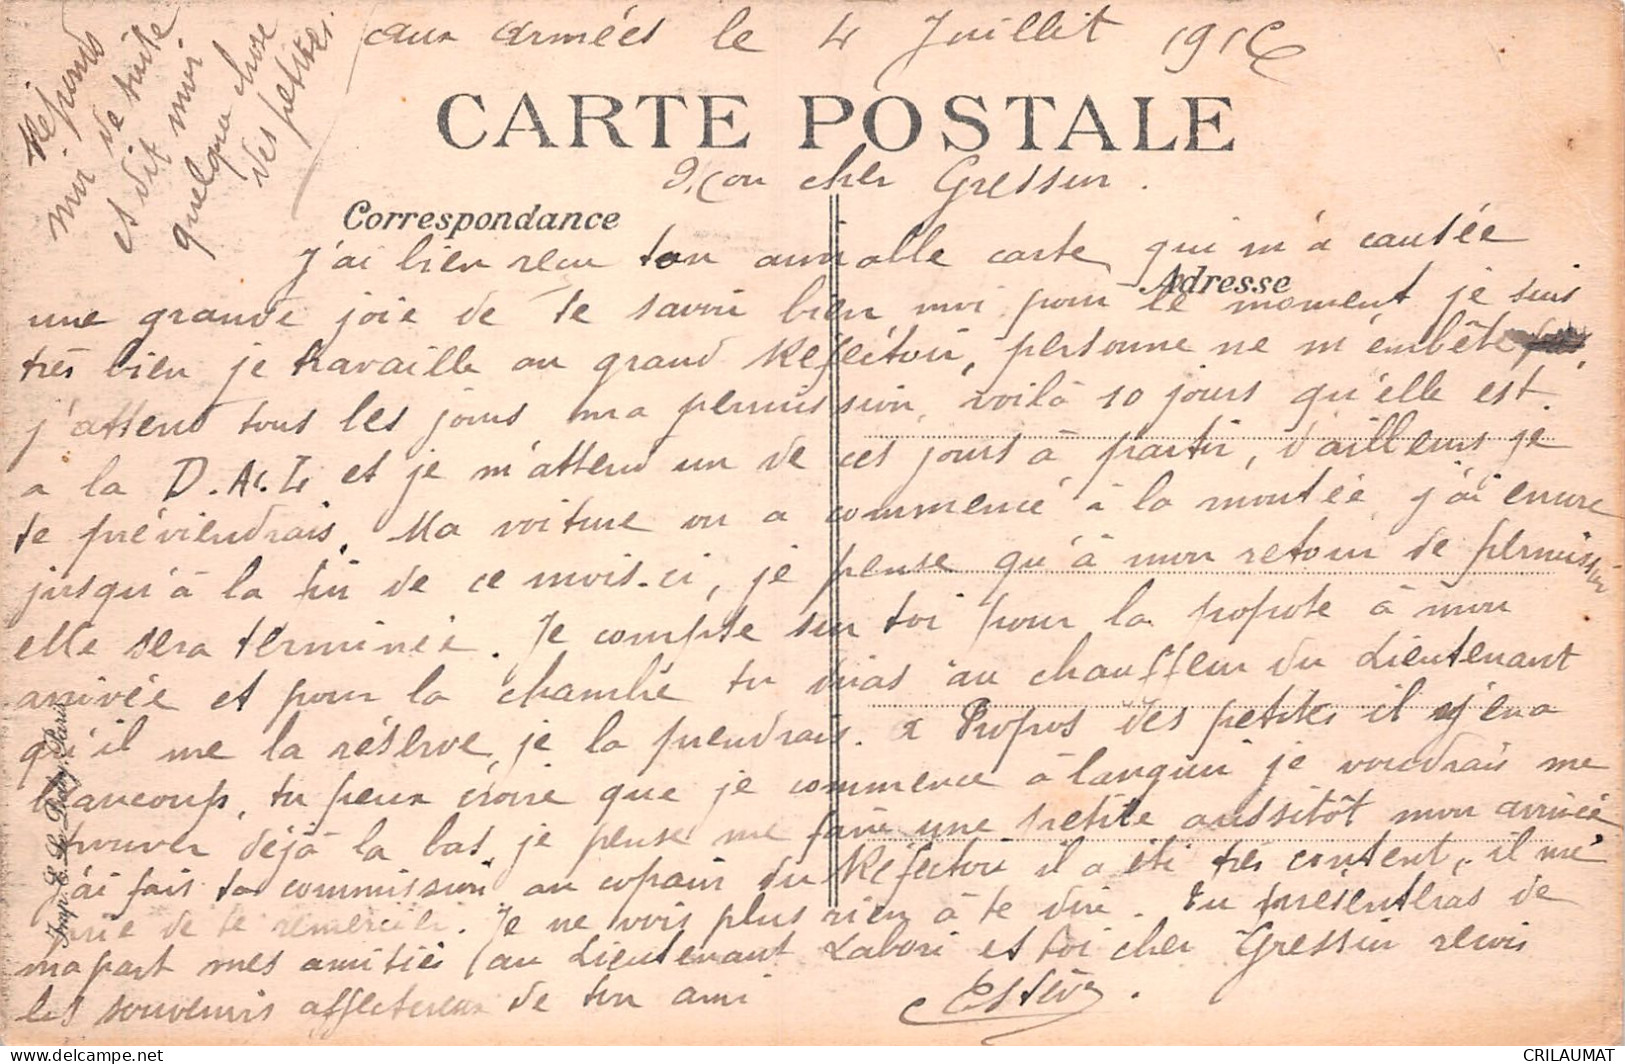 aux armées le 4 Juillet 1916
Réponds
moi de suite
et dit moi
quelque chose
des petites
CARTE POSTALE
Mon cher Gressin.
Correspondance
J'ai bien reçu ton aimable carte qui m'a causée
Adresse
une grande joie de te savoir bien moi pour le moment je suis
très bien je travaille au grand Refectoir, personne ne m'embête
j'attend tous les jours ma permission, voilà 10 jours qu'elle est
a la D. et je m'attend un de ces jours à partir, d'ailleurs je
te préviendrais. Ma voiture on a commencé à la montée j'ai encore
jusqu'à la fin de ce mois-ci, je pense qu'à mon retour de permission
elle sera terminée. Je compte sur toi pour la popote à mon
arrivée et pour la chambre tu diras au chauffeur du Lieutenant
qu'il me la réserve, je la prendrais. a Propos des petites il y en a
beaucoup, tu peux croire que je commence à languir je voudrais me
trouver déjà la bas, je pense me faire une petite aussitôt mon arrivée
j'ai fais ta commission au copain du Réfectoir il a été très content, il me
prie de te remercier. Je ne vois plus rien à te dire. Tu presenteras de
ma part mes amitiés au Lieutenant Labori et toi cher Gressin reçois
les souvenirs affectueux de ton ami Estève.
Imp. E. Le Deley, Paris
CRILAUMAT